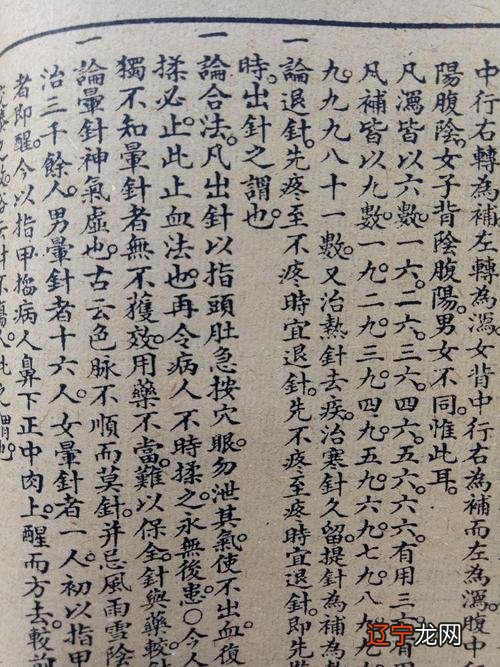 中行右轉為補左轉為瀉。女背中行右為補而左為瀉。腹中行
陽腹陰。女子背陰腹陽。男女不同惟此耳。
凡瀉皆以六數。一六二六三六四六五六六六。有用三六有
凡補皆以九數。一九二九三九四九五九六九七九八九九
九九九八十一數。又治熱針去疾。治寒針久留。提針為補
一論退針。先疼至不疼時宜退針。先不疼至疼時宜退針。即先
時。出針之謂也。
一論合法。凡出針以指頭肚急按穴眼。勿泄其氣。使不出血。後
揉必止。此止血法也。再令病人不時揉之。永無後患。○今人
獨不知暈針者無不獲效。用藥不當。難以保全。針與藥較
一論暈針神氣虛也。古云色脉不順而莫針。并忌風雨雪陰
治三千餘人。男暈針者十六人。女暈針者一人。初以指甲
者即醒。今以指甲搯病人鼻下正中肉上。醒而方去。較前
辽宁龙网